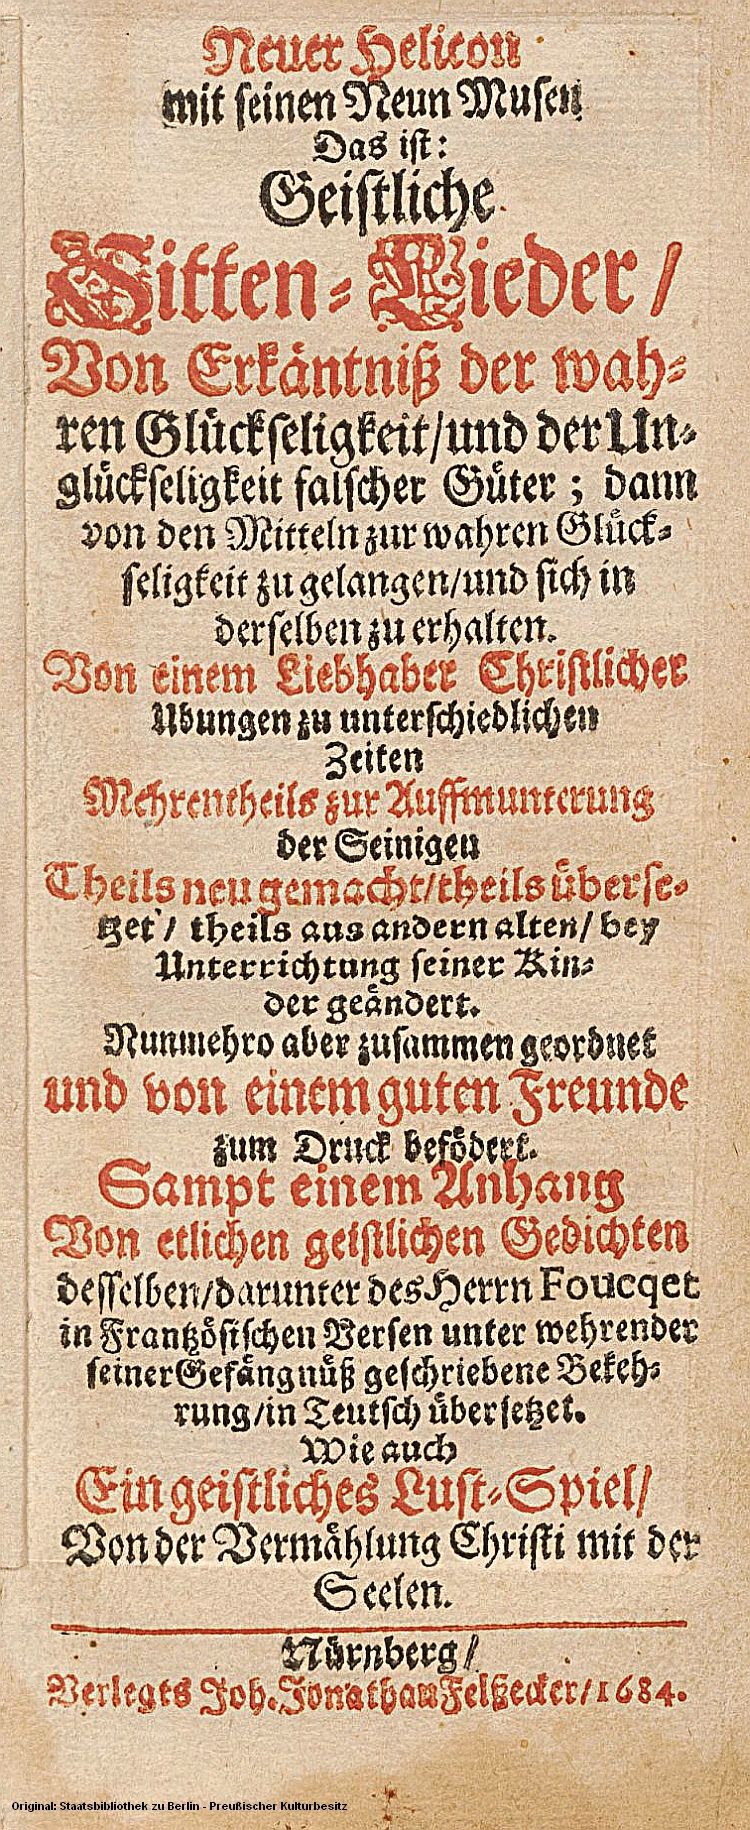 Neuer Helicon
mit seinen Neun Musen
Das ist:
Geistliche
Sitten-Lieder/
Von Erkäntniß der wah-
ren Glückseligkeit/und der Un-
glückseligkeit falscher Güter; dann
von den Mitteln zur wahren Glück-
seligkeit zu gelangen/und sich in
derselben zu erhalten.
Von einem Liebhaber Christlicher
Ubungen zu unterschiedlichen
Zeiten
Mehrentheils zur Auffmunterung
der Seinigen
Theils neu gemacht/theils überse-
tzet/ theils aus andern alten/ bey
Unterrichtung seiner Kin-
der geändert.
Nunmehro aber zusammen geordnet
und von einem guten Freunde
zum Druck befödert.
Sampt einem Anhang
Von etlichen geistlichen Gedichten
desselben/darunter des Herrn Foucqet
in Frantzösischen Versen unter wehrender
seiner Gefängnüß geschriebene Bekeh-
rung/in Teutsch übersetzet.
Wie auch
Ein geistliches Lust-Spiel/
Von der Vermählung Christi mit der
Seelen.
Nürnberg/
Verlegts Joh. Jonathan Felßecker/1684.
Original: Staatsbibliothek zu Berlin - Preußischer Kulturbesitz